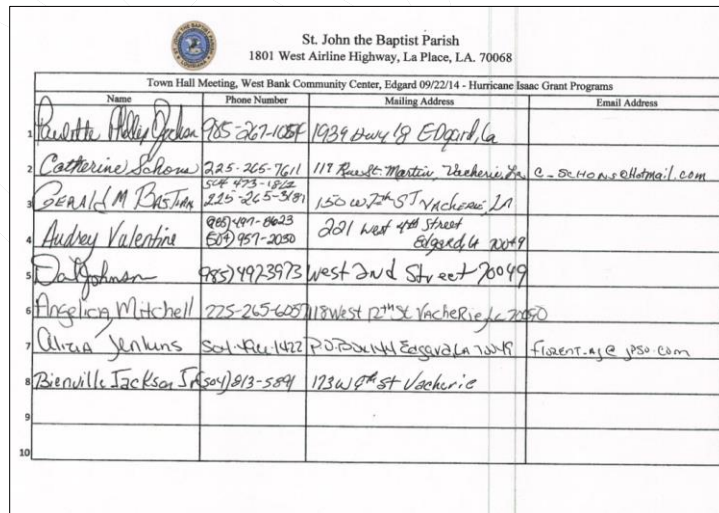 St. John the Baptist Parish
1801 West Airline Highway, La Place, LA. 70068
Town Hall Meeting, West Bank Community Center, Edgard 09/22/14 - Hurricane Isaac Grant Programs
Name Phone Number Mailing Address Email Address
1 Paulette 985-267-1054 1939 Hwy 18 Edgard, La
2 Catherine Schons 225-265-7611 119 Rue St. Martin, Vacherie, La C-SCHONS@Hotmail.com
504 473-1862
3 GERALD M BASTIAN 225-265-3181 150 W 7th ST VACHERIE, LA
4 Audrey Valentine (985) 497-8623 221 West 4th Street
(504) 957-2050 Edgard, La 70049
5 Johnson (985) 4923973 West 2nd Street 70049
6 Angelicia Mitchell 225-265-6057 118 West 12th St Vacherie, La 70090
7 Alicia Jenkins Edgard LA 70049
8 Bienville Jackson Jr (504) 813-5891 173 W 9th St Vacherie
9
10